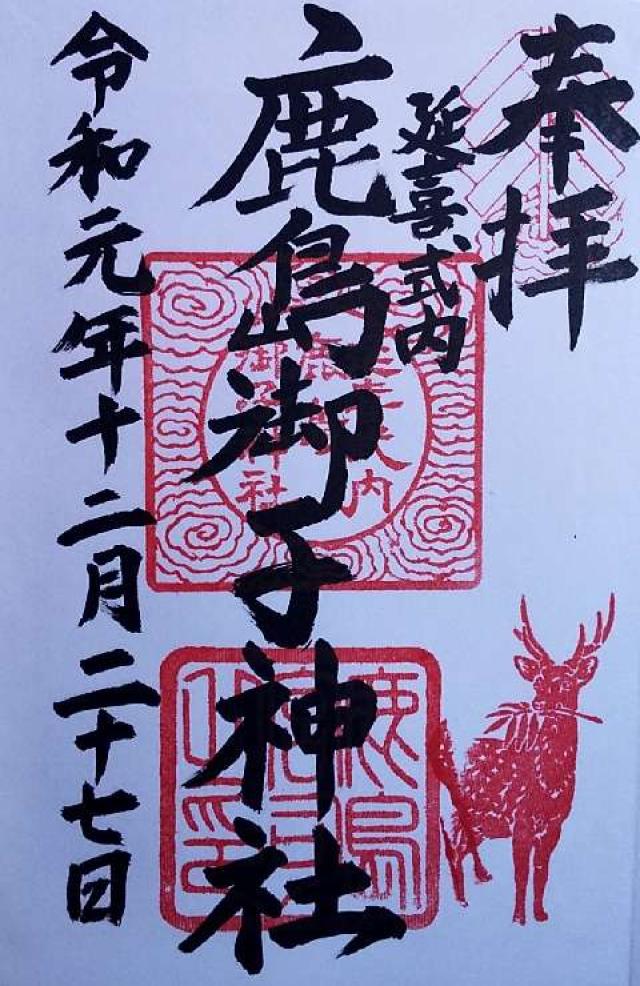 奉拝
延喜式内
鹿島御子神社
令和元年十二月二十七日
延喜式内
鹿島
御子神社
鹿島